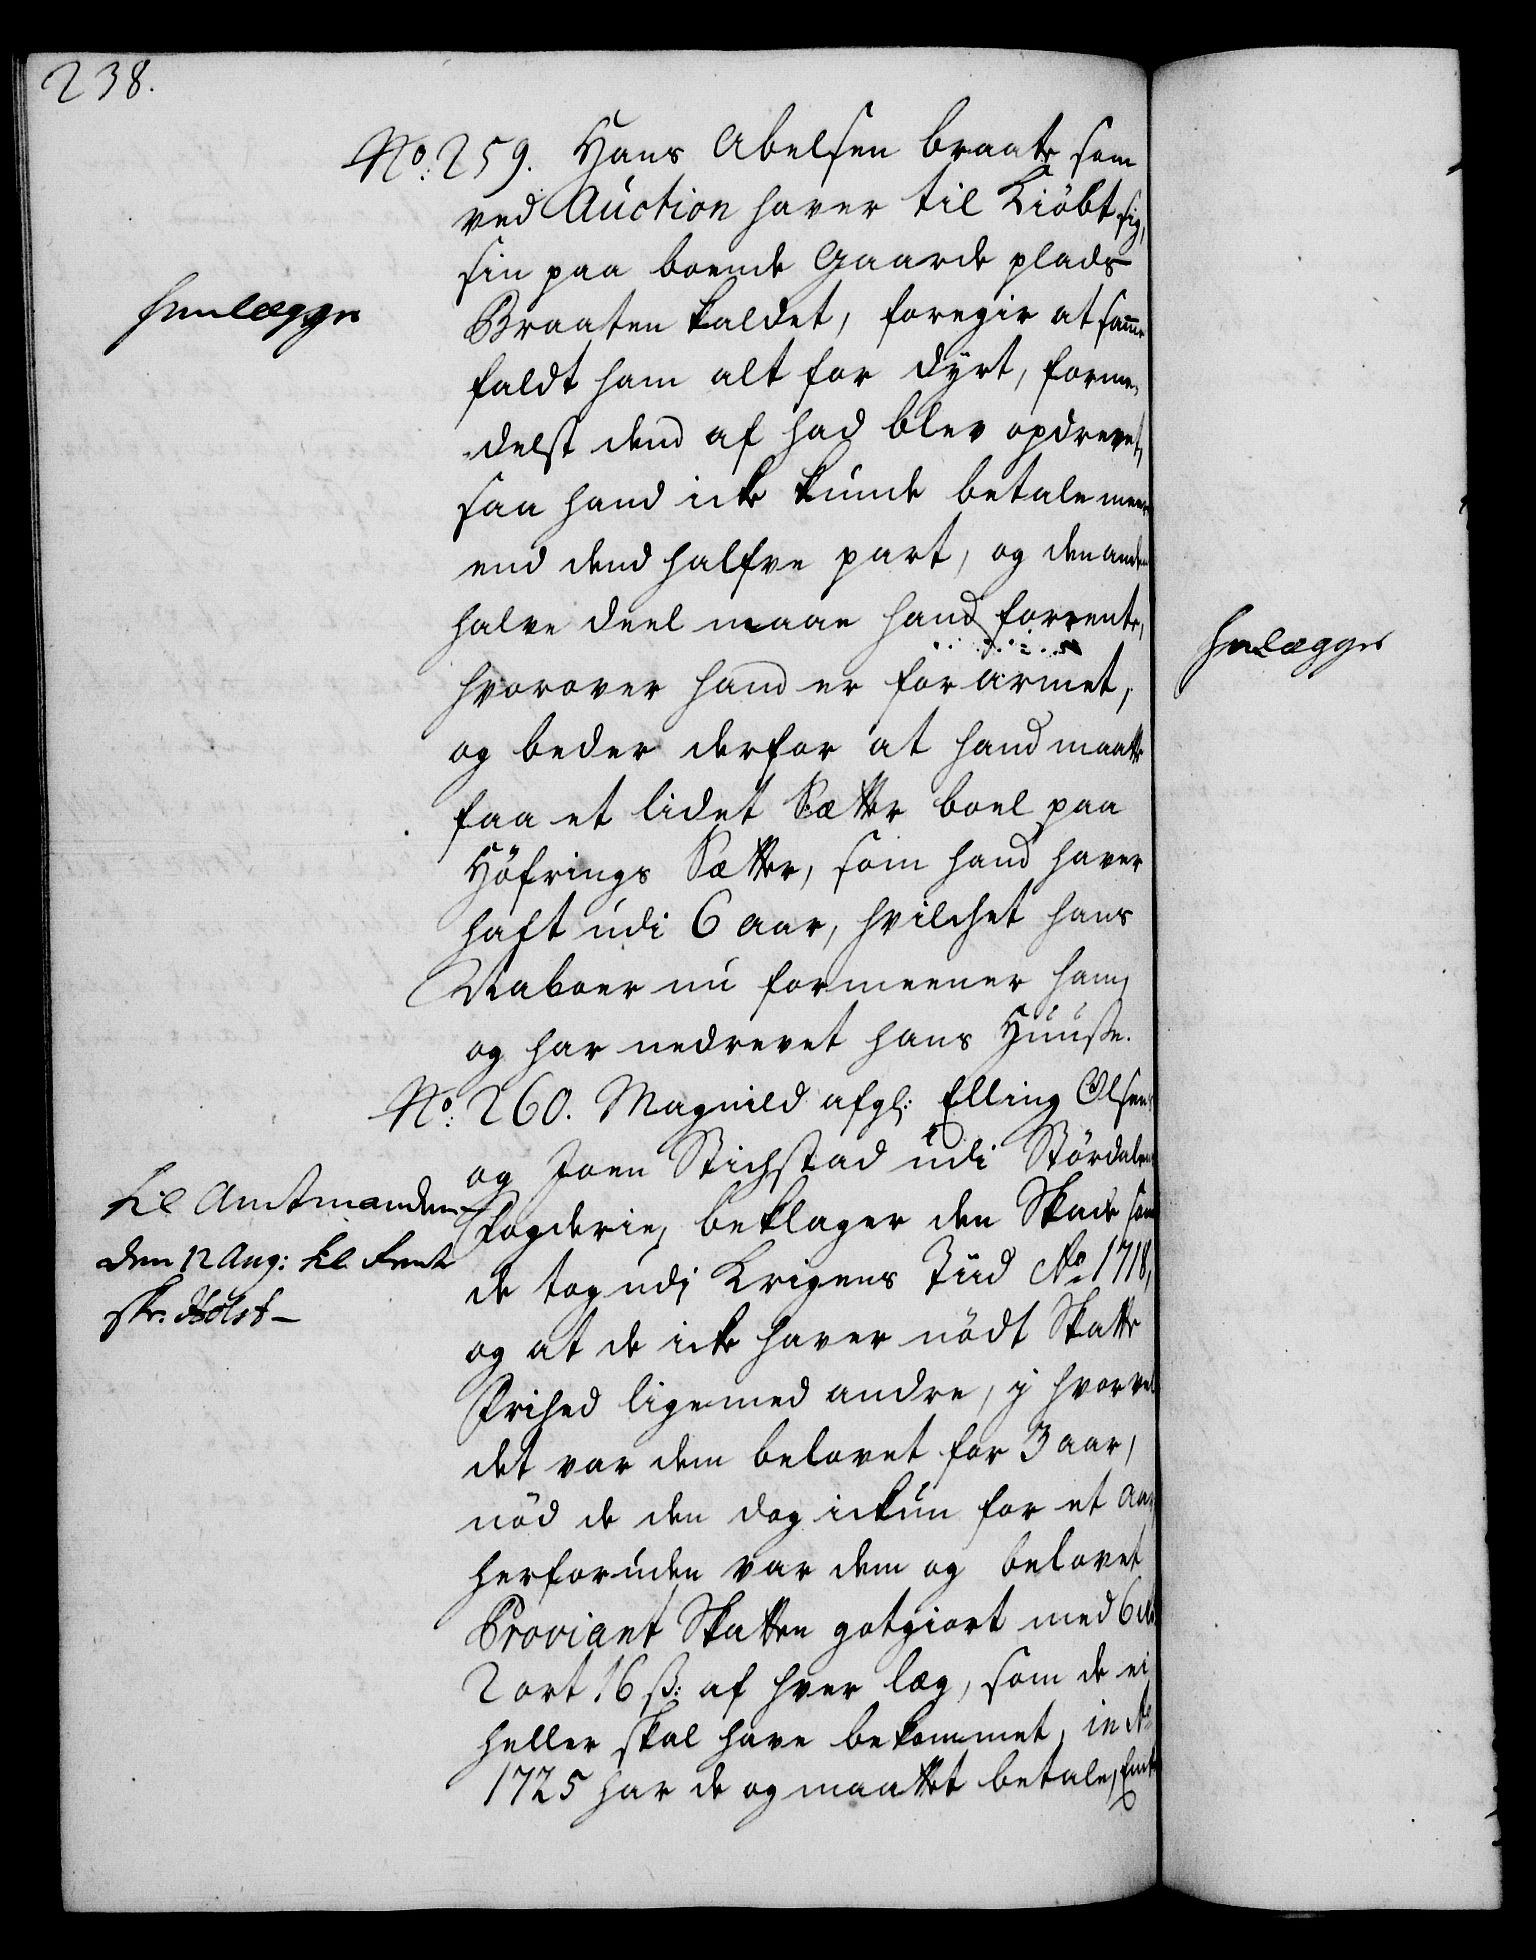 238.
No: 259. Hans Abelsen braate som
ved Auction haver til Kiöbt sig,
sin paa boende Gaarde plads
henlægges
Braaten kaldet, foregir at samme
faldt ham alt for dyrt, forme-
delst dend af had blev opdrevet,
saa hand icke kunde betale meer
end dend halfve part, og den anden
halve deel maae hand forrente,
hvorover hand er forarmet,
og beder derfor at hand maatte
faa et lidet Sætter boel paa
Höfrings Sætter, som hand haver
haft udi 6 aar, hvilchet hans
Naboer nu formeener ham,
og har nedrevet hans Huuse.
No: 260. Magnild afgl: Elling Olsens
og Joen Stichstad udi Stördalens
til Amtmanden
Fogderie, beklager den Skade som
den 12 Aug: til
de tog udj Krigens Tiid Ao 1718,
skr. Holst
og at de icke haver nödt Skatte
Frihed lige med andre, j hvor vel
det var dem belovet for 3 aar,
nöd de den dog ickun for et aar,
herforuden var dem og belovet
Proviant Skatten gotgiort med 6
2 ort 16 ß: af hver læg, som de ei
heller skal have bekommet, in Ao
1725 har de og maattet betale,
henlægges